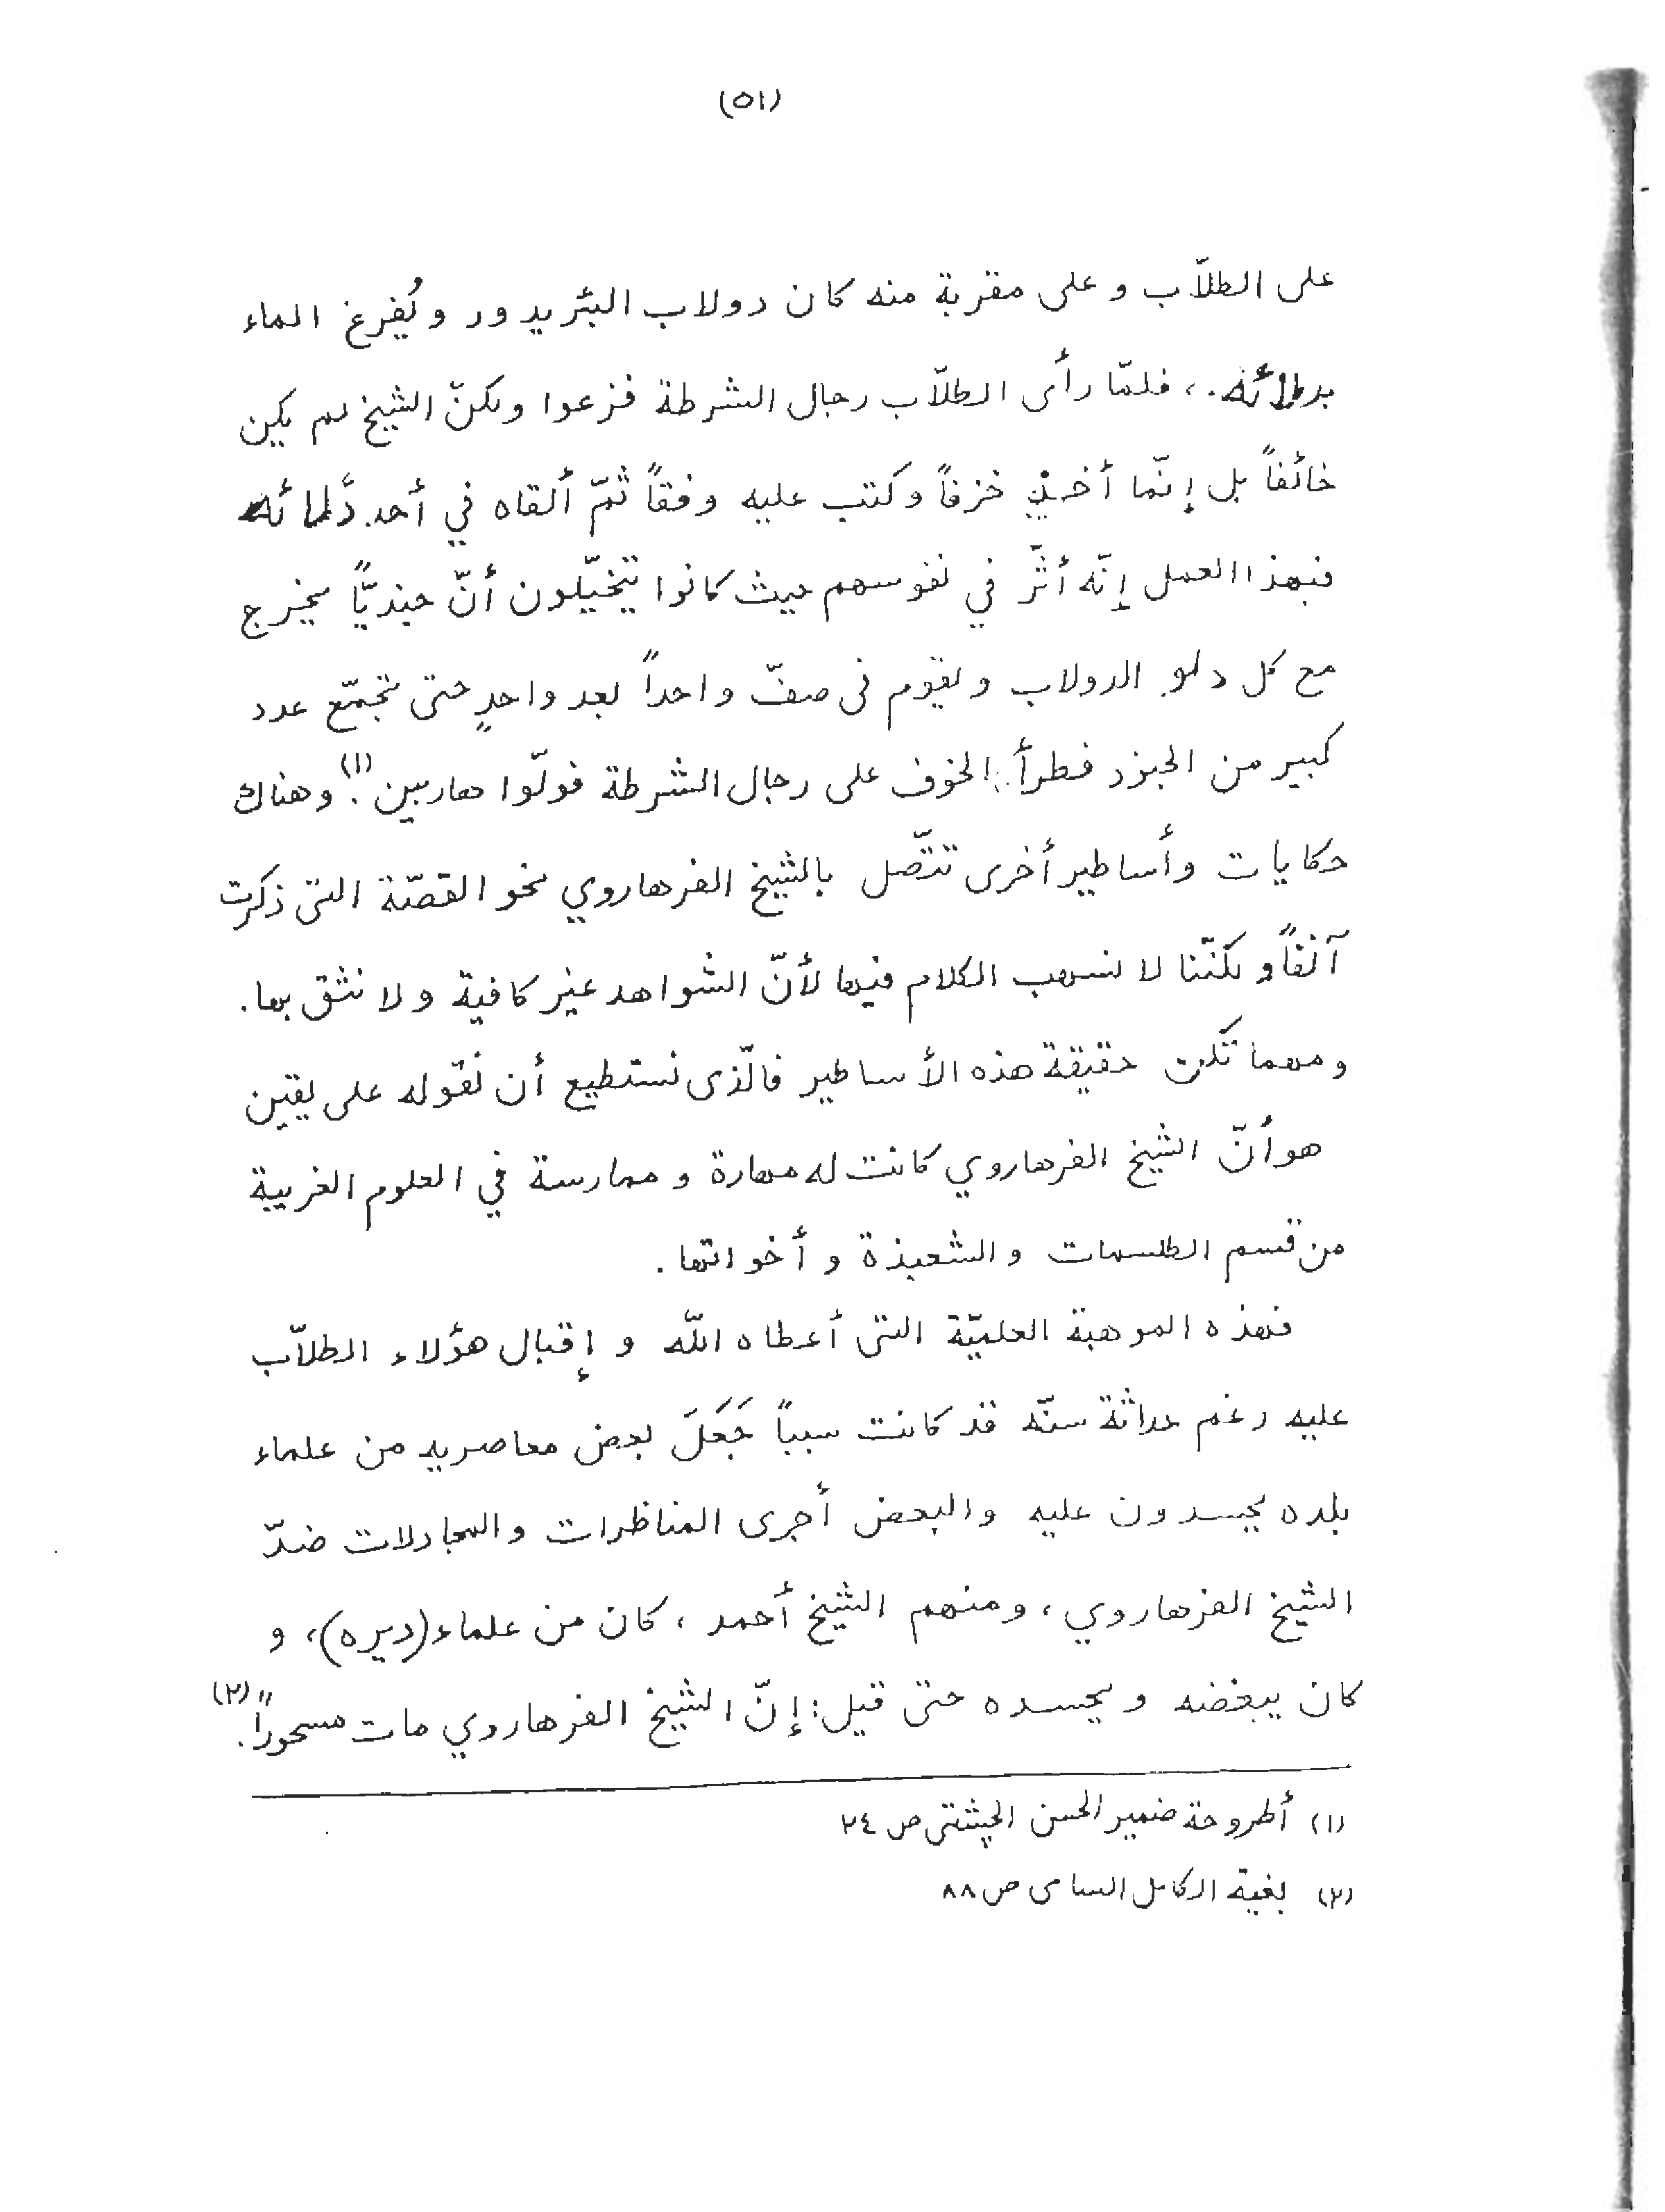 (٥١)
على الطلاّب وعلى مقربة منه كان دولاب البئر يدور ويُفرغ الماء
بدلائه.، فلمّا رأى الطلاّب رجال الشرطة فزعوا ولكنّ الشيخ لم يكن
خائفاً بل إنّما أخذ خزفاً وكتب عليه وفقاً ثمّ ألقاه في أحد دلائه
فبهذا العمل إنّه أثّر في نفوسهم حيث كانوا يتخيّلون أنّ جنديّاً يخرج
مع كل دلو الدولاب ويقوم فى صفّ واحداً بعد واحدٍ حتى تجمّع عدد
كبير من الجنود فطرأ الخوف على رجال الشرطة فولّوا هاربين.(١) وهناك
حكايات وأساطير أخرى تتّصل بالشيخ الفرهاروي نحو القصّة التى ذكرت
آنفاً ولكنّنا لا نسهب الكلام فيها لأنّ الشواهد غير كافية ولا نثق بها.
ومهما تكن حقيقة هذه الأساطير فالّذى نستطيع أن نقوله على يقين
هو أنّ الشيخ الفرهاروي كانت له مهارة وممارسة في العلوم الغريبة
من قسم الطلسمات والشعبذة وأخواتها.
فهذه الموهبة العلميّة التى أعطاه اللّه وإقبال هؤلاء الطلاّب
عليه رغم حداثة سنّه قد كانت سبباً جَعَلَ بعض معاصريه من علماء
بلده يحسدون عليه والبعض أجرى المناظرات والمجادلات ضدّ
الشيخ الفرهاروي، ومنهم الشيخ أحمد، كان من علماء (ديره)، و
كان يبغضه ويحسده حتى قيل: إنّ الشيخ الفرهاروي مات مسحوراً.(٢)
(١) أطروحة ضمير الحسن الچشتى ص ٢٤
(٢) بغية الكامل السامى ص ٨٨